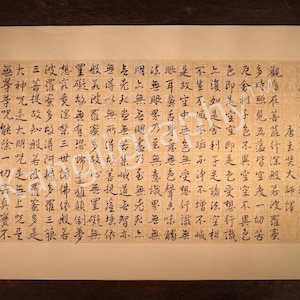 唐玄奘大師譯
觀自在菩薩行深般若波羅蜜
多時照見五蘊皆空度一切苦
厄舍利子色不異空空不異色
色即是空空即是色受想行識
亦復如是舍利子是諸法空相
不生不滅不垢不淨不增不減
是故空中無色無受想行識無
眼耳鼻舌身意無色聲香味觸
法無眼界乃至無意識界無
無明亦無無明盡乃至無老死
亦無老死盡無苦集滅道無智亦
無得以無所得故菩提薩埵依
般若波羅蜜多故心無罣礙無
罣礙故無有恐怖遠離顛倒夢
想究竟涅槃三世諸佛依般若
波羅蜜多故得阿耨多羅三藐
三菩提故知般若波羅蜜多是
大神咒是大明咒是無上咒是
無等等咒能除一切苦真實不